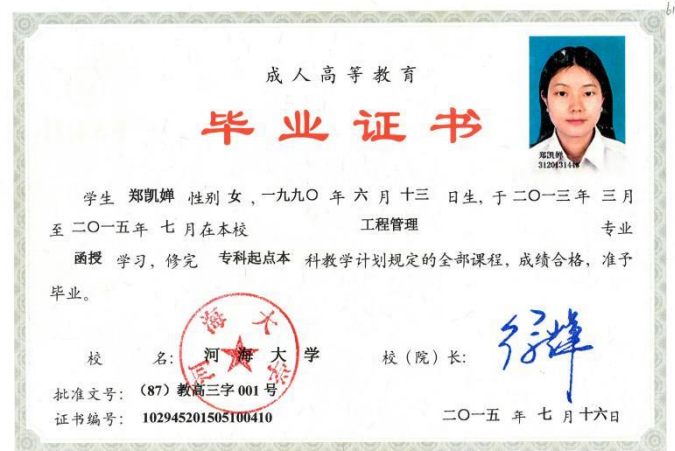 成人高等教育
毕业证书
郑凯婵
学生 郑凯婵 性别 女 ，一九九〇 年 六 月 十三 日生，于二〇一三年 三月
至 二〇一五年 七 月在本校 工程管理 专业
函授 学习，修完 专科起点本 科教学计划规定的全部课程，成绩合格，准予
毕业。
河海大学
校 名： 河 海 大 学 校（院）长：
批准文号：（87）教高三字 001 号
证书编号： 102945201505100410 二〇一五 年 七 月 十六日